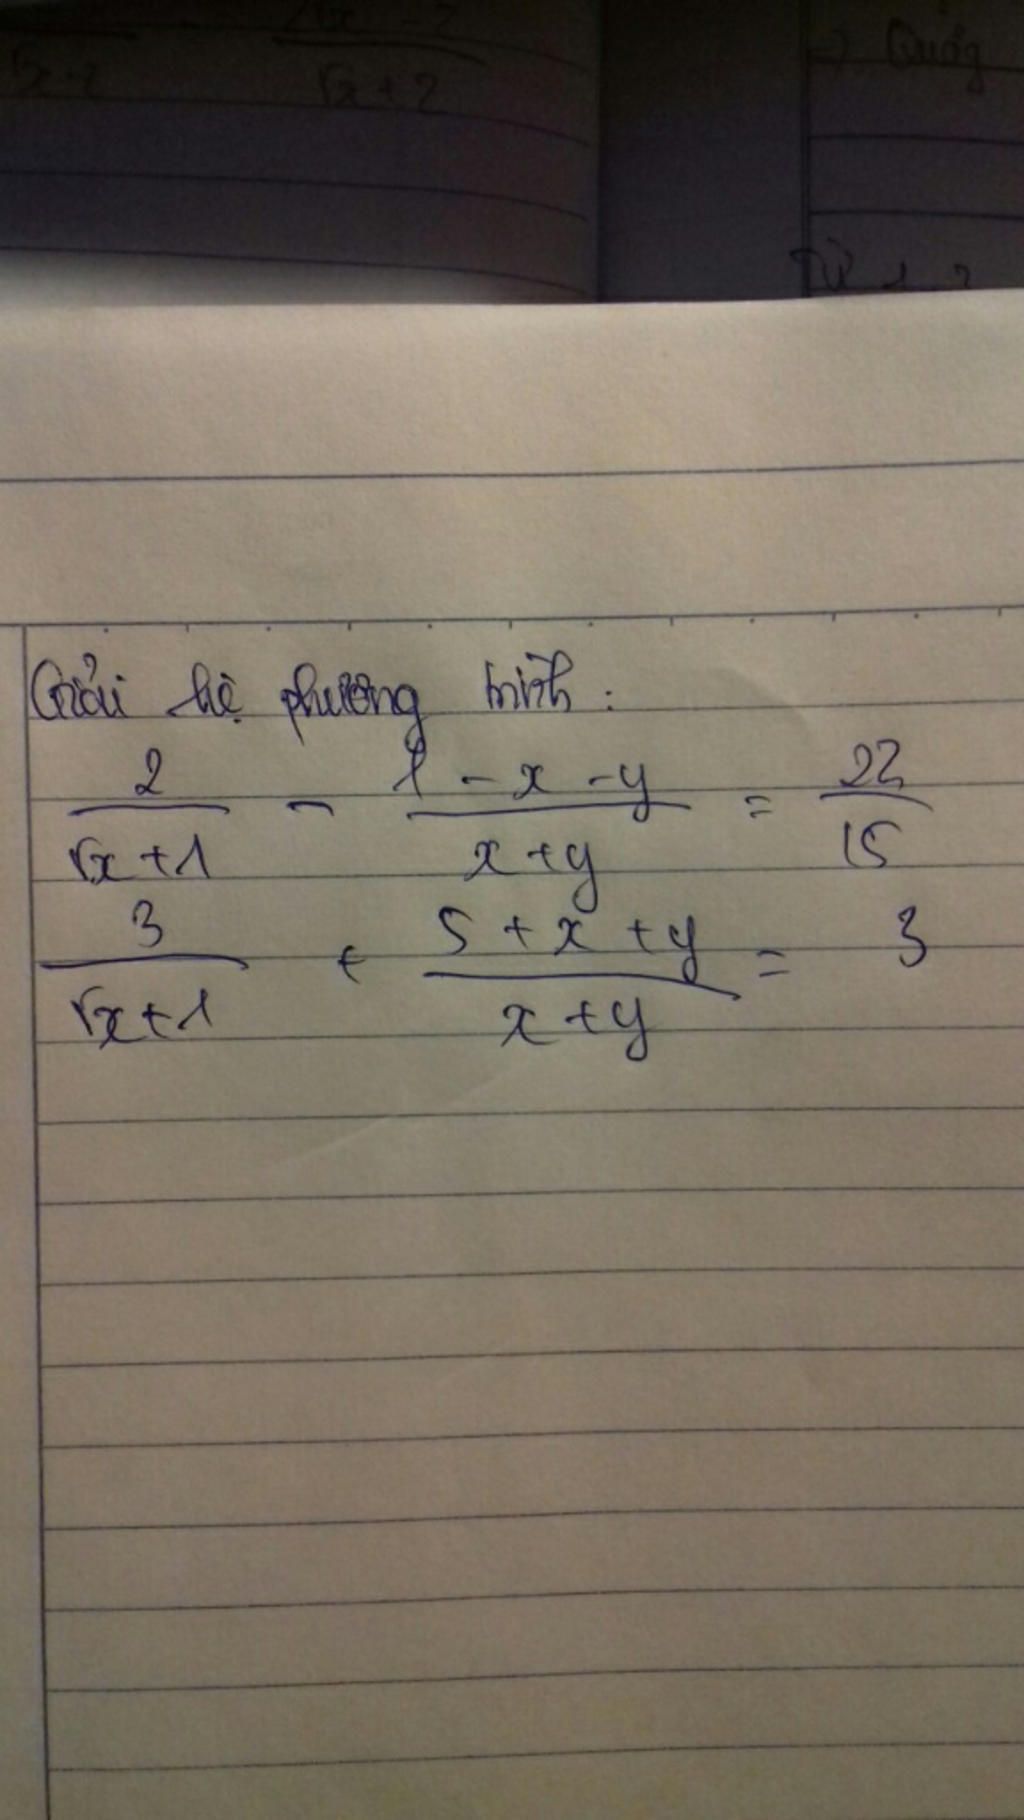 2√x - 2
√x - 2
√x + 2
=> Quãng
Từ 1, 2
Giải hệ phương trình:
2/(√x+1) - (1 - x - y)/(x + y) = 22/15
3/(√x+1) + (5 + x + y)/(x + y) = 3